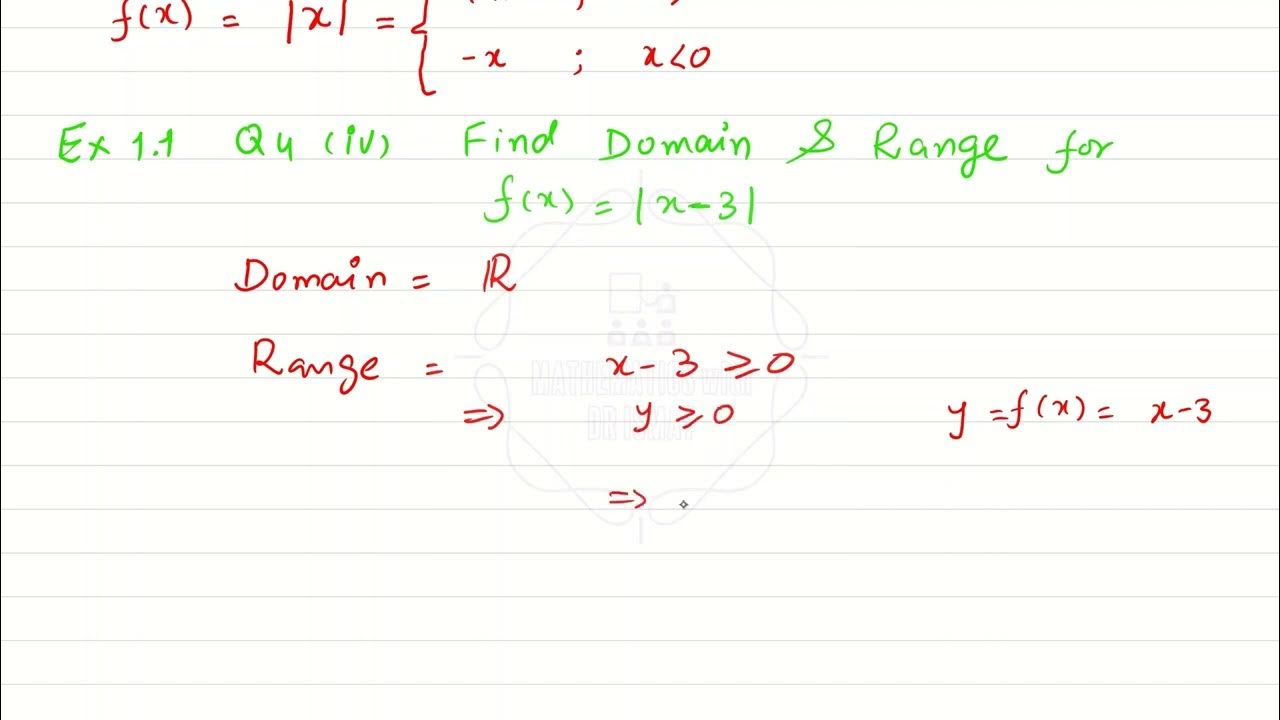 f(x) = |x| = {
-x ; x<0
Ex 1.1 Q4 (iv) Find Domain & Range for
f(x) = |x-3|
Domain = ℝ
Range = x-3 ≥0
=> y ≥ 0 y =f(x) = x-3
=>
MATHEMATICS WITH